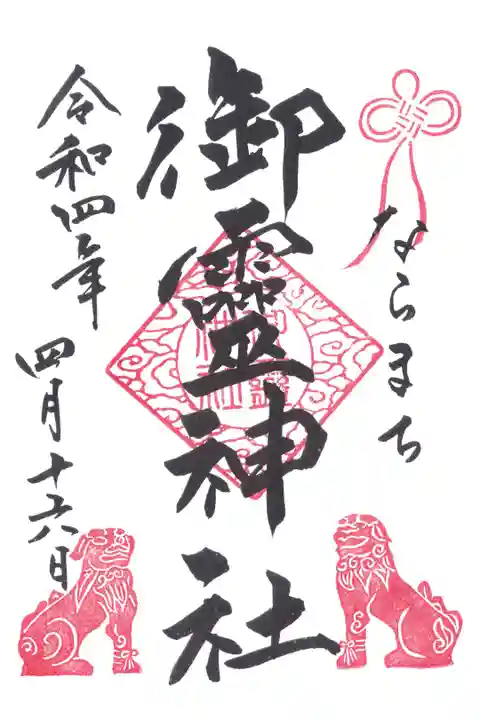 ならまち
御靈神社
令和四年 四月十六日